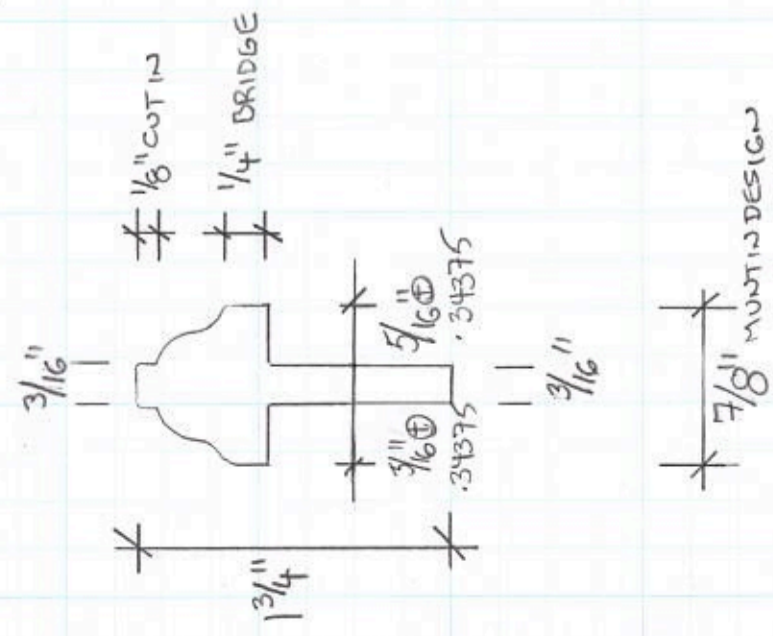 3/16"
1/8" CUT IN
1/4" BRIDGE
1 3/4"
3/16" ⊕
.34375
5/16" ⊕
.34375
3/16"
7/8" MUNTIN DESIGN